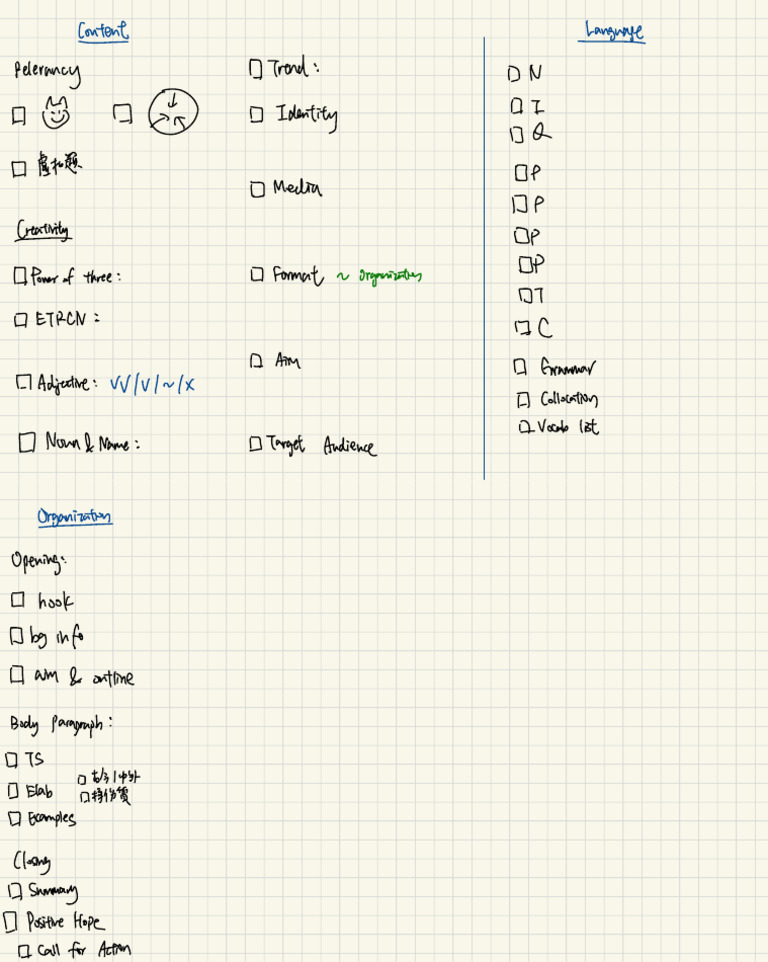 Content
Relevancy
虛扣題
Creativity
Power of three:
ETRCN:
Adjective: VV/V/~/X
Noun & Name:
Trend:
Identity
Media
Format ~ Organization
Aim
Target Audience
Language
N
I
Q
P
P
P
P
T
C
Grammar
Collocation
Vocab list
Organization
Opening:
hook
bg info
aim & outline
Body Paragraph:
TS
Elab
古/今/中/外
Examples
Closing
Summary
Positive Hope
Call for Action